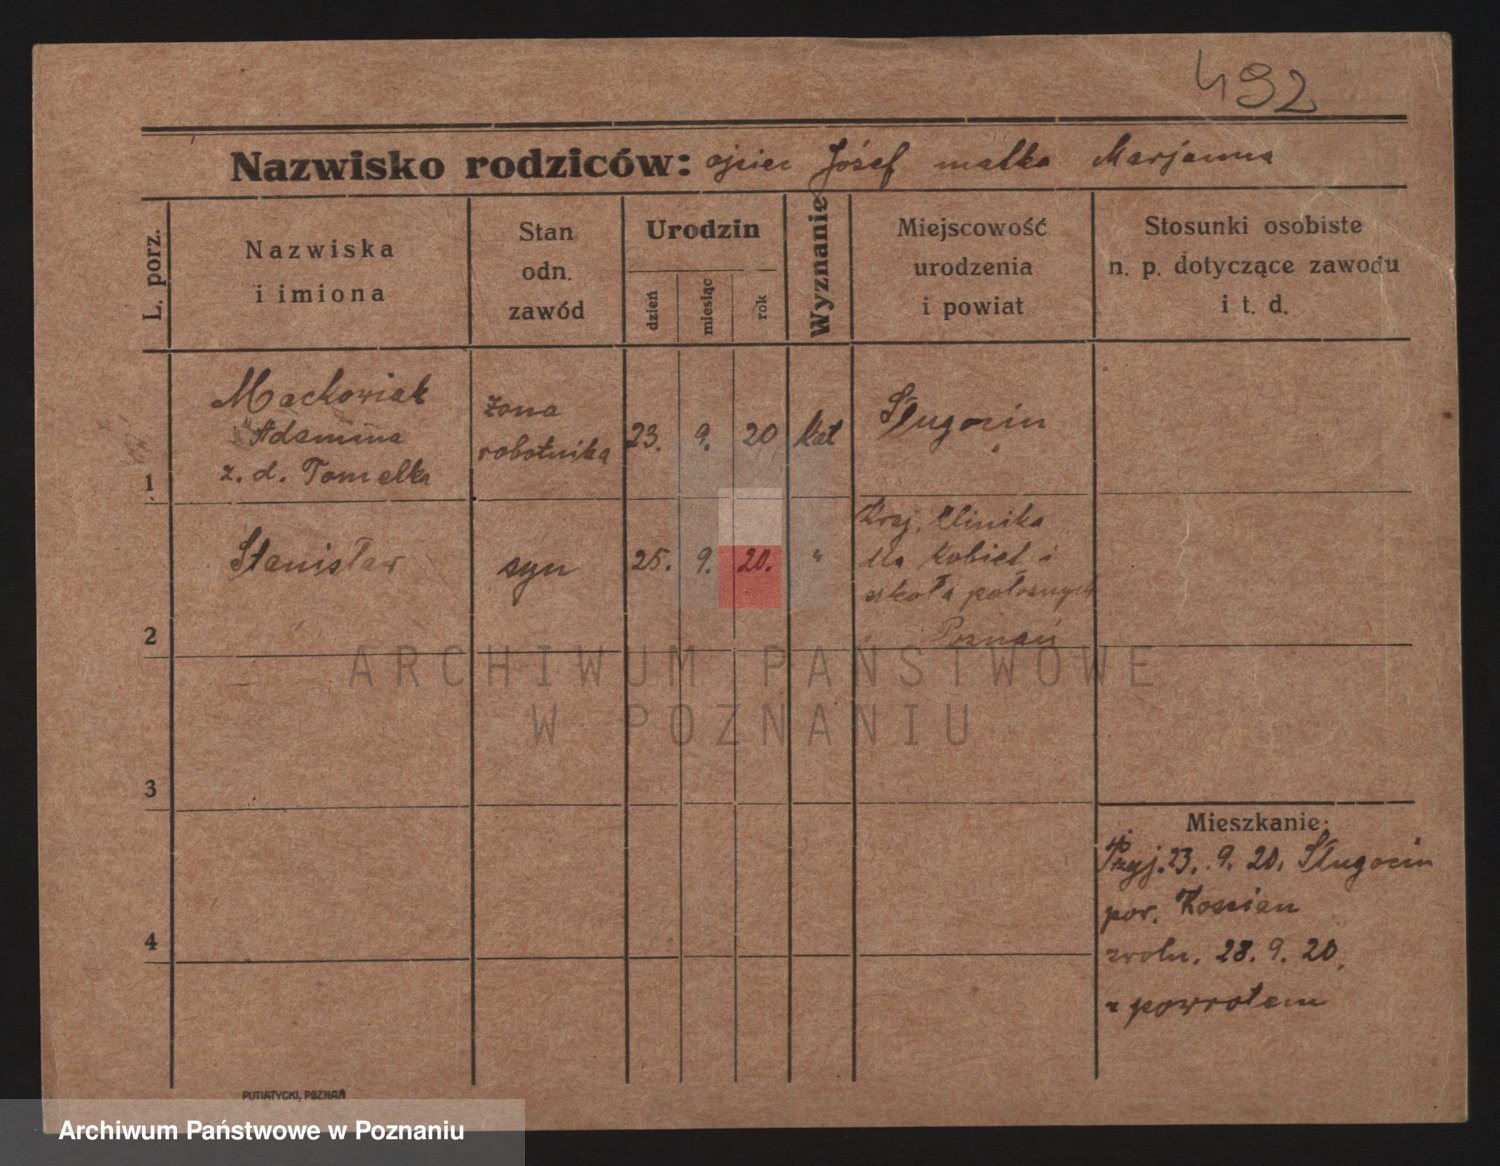 492
Nazwisko rodziców: ojciec Józef matka Marjanna
L. porz.
Nazwiska
i imiona
Stan
odn.
zawód
Urodzin
dzień
miesiąc
rok
Wyznanie
Miejscowość
urodzenia
i powiat
Stosunki osobiste
n. p. dotyczące zawodu
i t. d.
1
Maćkowiak
Adamina
z. d. Tomelka
żona
robotnika
23.
9.
20
kat
Sługocin
2
Stanisław
syn
25.
9.
20.
"
Kraj. klinika
dla kobiet i
szkoła położnych
Poznań
3
4
Mieszkanie:
Przyj. 23. 9. 20. Sługocin
pow. Kościan
zwoln. 28. 9. 20.
z powrotem
PUTIATYCKI, POZNAŃ
ARCHIWUM PAŃSTWOWE
W POZNANIU
Archiwum Państwowe w Poznaniu